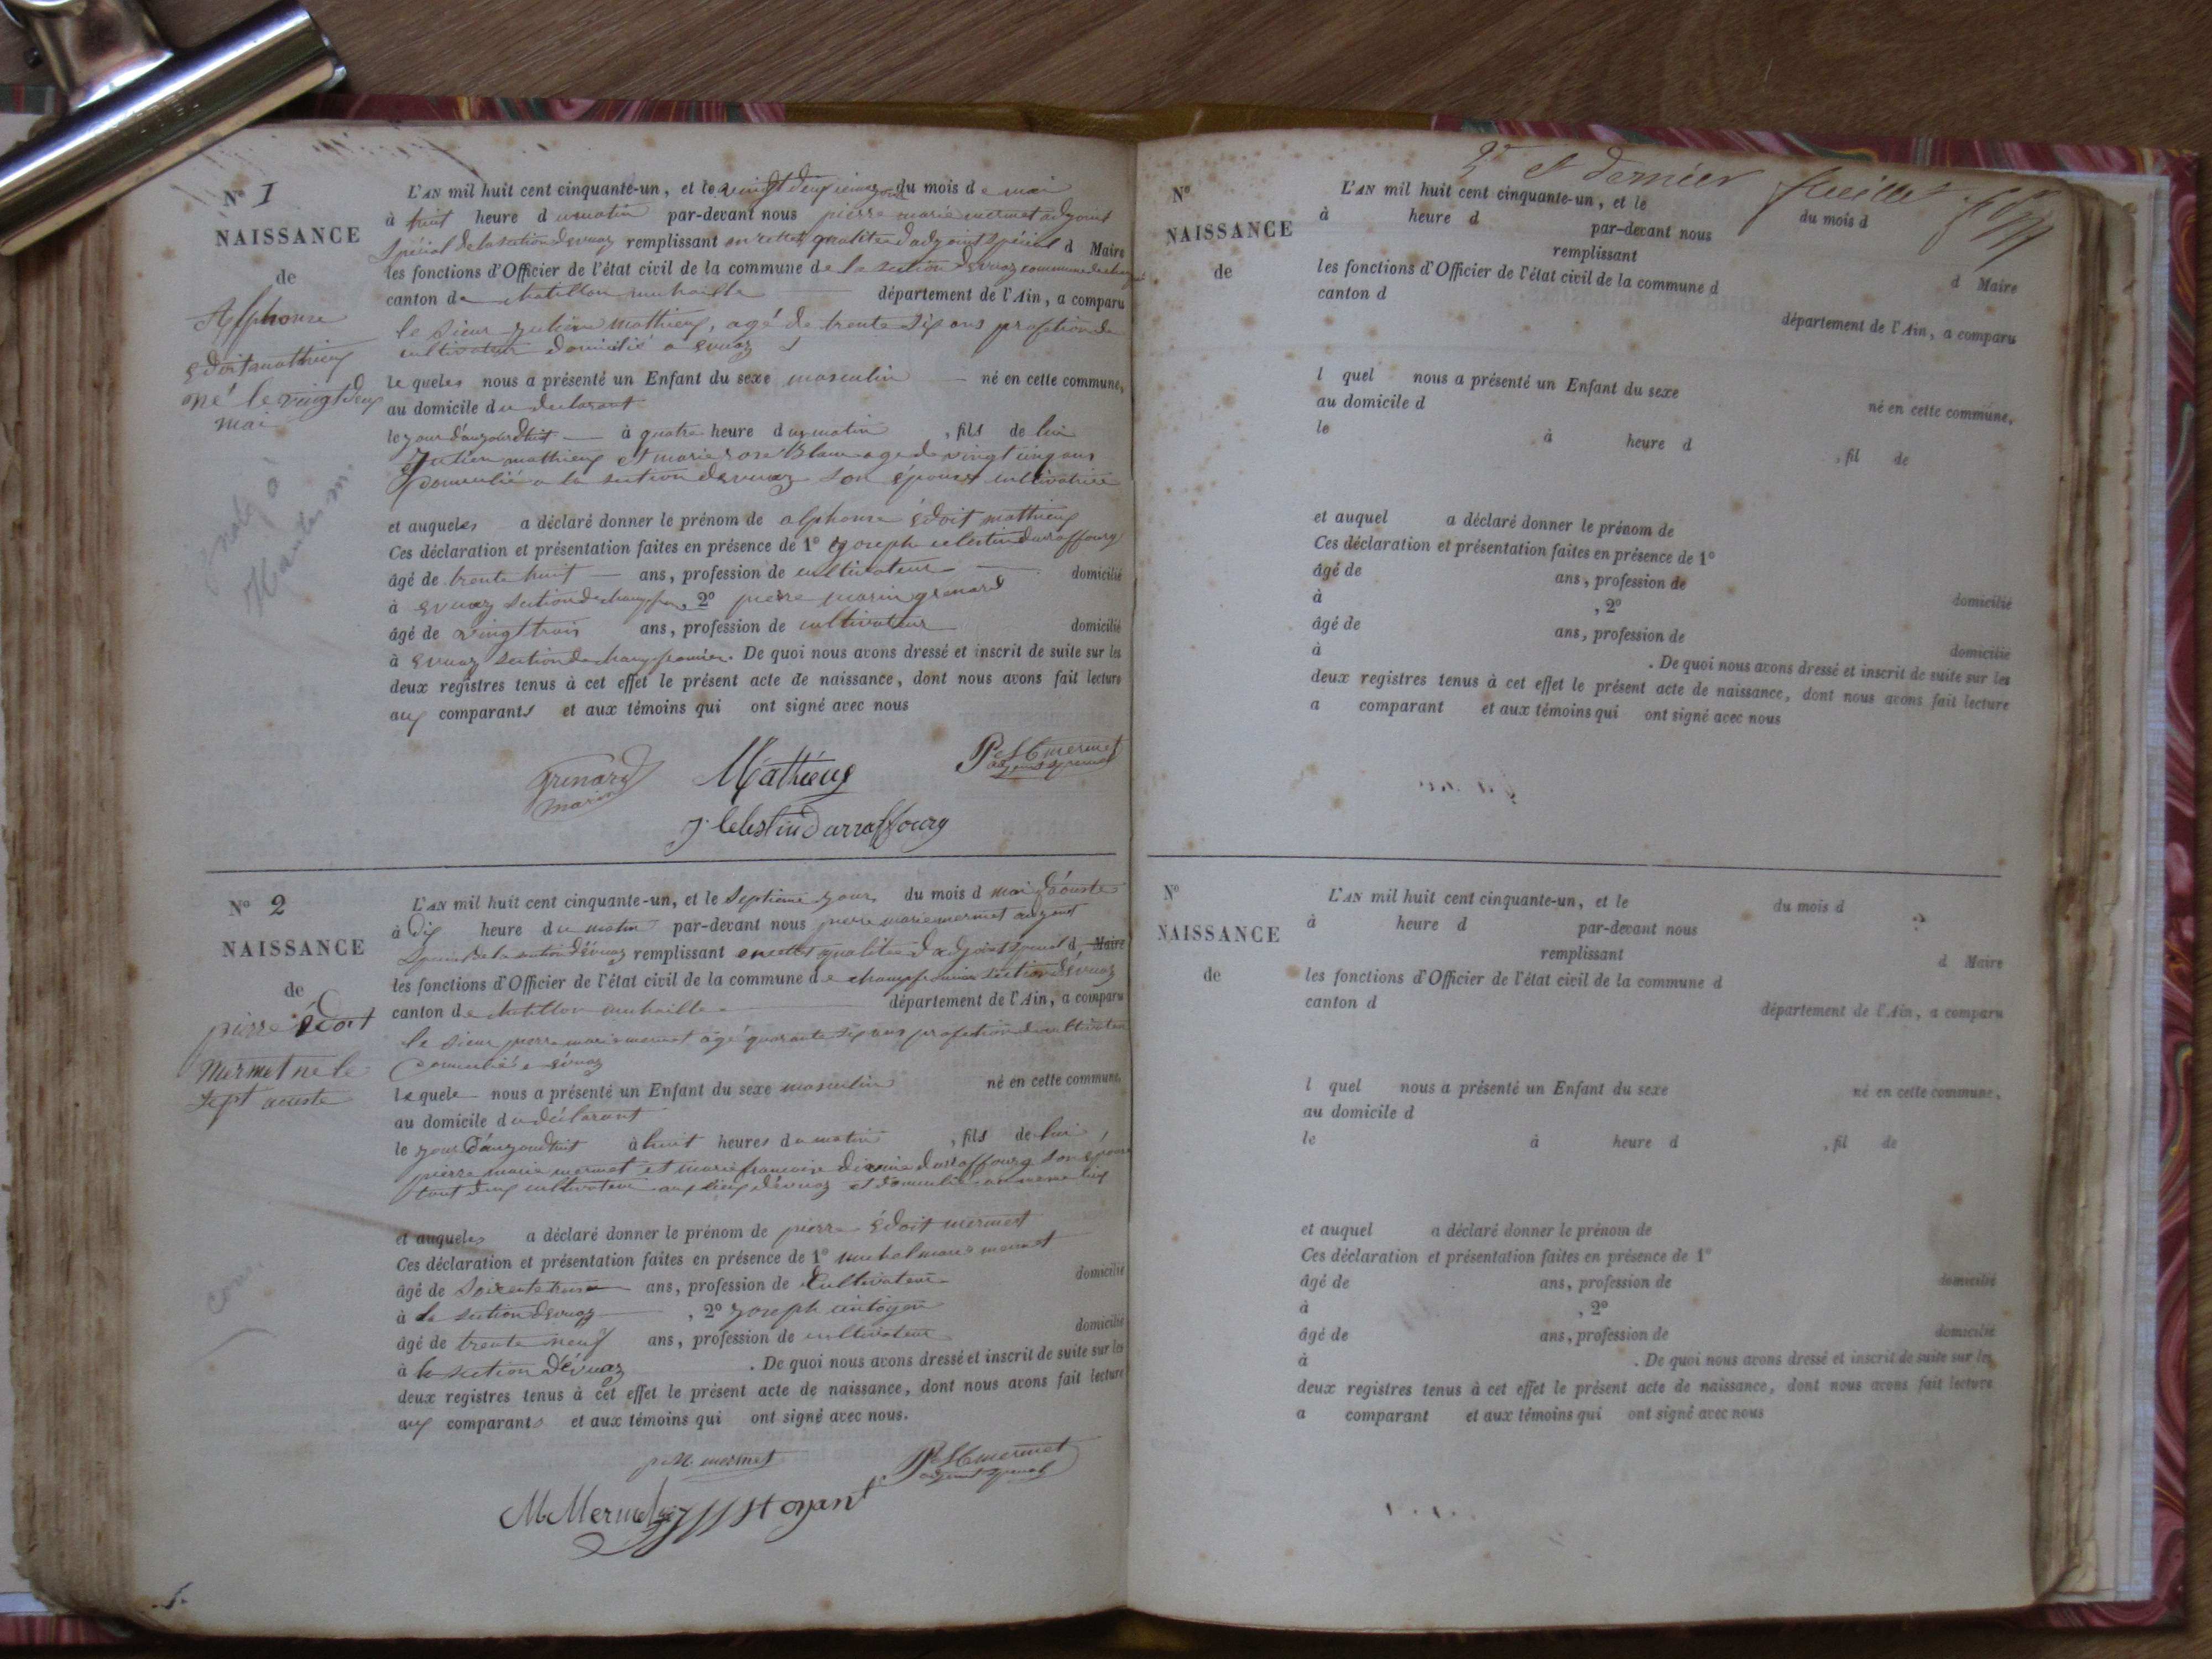 N° 1
NAISSANCE
de
Alphonse
Edoit mathieu
né le vingt deux
mai
L'AN mil huit cent cinquante-un, et le vingt deuxieme jour du mois de mai
à huit heure du matin par-devant nous pierre marie mermet adjoint
Spécial de la section devuaz remplissant en cette qualite d'adjoint spécial d Maire
les fonctions d'Officier de l'état civil de la commune de la section devuaz commune de
canton de chatillon michaille département de l'Ain, a comparu
le sieur Julien mathieux, agé de trente six ans profection de
cultivateur domicilié a evuaz
lequeles nous a présenté un Enfant du sexe masculin né en cette commune,
au domicile du declarant
le jour d'aujourdhuit à quatre heure du matin , fils de lui
Julien mathieux et marie rose Blanc age de vingt cinq ans
domicilié a la section devuaz son épouse cultivatrice
et auqueles a déclaré donner le prénom de alphonse édoit mathieux
Ces déclaration et présentation faites en présence de 1° joseph celestin darraffourg
âgé de trente huit ans, profession de cultivateur domicilié
à evuaz section de , 2° pierre marin grenard
âgé de vingt trois ans, profession de cultivateur domicilié
à evuaz section de champfromier. De quoi nous avons dressé et inscrit de suite sur les
deux registres tenus à cet effet le présent acte de naissance, dont nous avons fait lecture
aux comparants et aux témoins qui ont signé avec nous
Grenard Mathieux P M mermet
marin adjoint special
J. Celestin Darraffourg
N° 2
NAISSANCE
de
pierre édoit
Mermet né le
sept aouste
L'AN mil huit cent cinquante-un, et le septieme jour du mois d mai d'aouste
à dix heure du matin par-devant nous pierre marie mermet adjoint
Special de la section d'évuaz remplissant en cette qualite d'adjoint special d Maire
les fonctions d'Officier de l'état civil de la commune de champfromier section d'évuaz
canton de chatillon michaille département de l'Ain, a comparu
le sieur pierre marie mermet âgé quarante six ans profection de cultivateur
domicilié a évuaz
lequele nous a présenté un Enfant du sexe masculin né en cette commune,
au domicile du déclarant
le jour d'aujourdhuit à huit heures du matin , fils de lui,
pierre marie mermet et marie francoise darraffourg son épouse
tout deux cultivateur aux lieux d'évuaz et domicilié au meme lieux
et auqueles a déclaré donner le prénom de pierre édoit mermet
Ces déclaration et présentation faites en présence de 1° michel marie mermet
âgé de ans, profession de Cultivateur domicilié
à la section devuaz , 2° joseph
âgé de trente neuf ans, profession de cultivateur domicilié
à la section d'évuaz . De quoi nous avons dressé et inscrit de suite sur les
deux registres tenus à cet effet le présent acte de naissance, dont nous avons fait lecture
aux comparants et aux témoins qui ont signé avec nous.
p M mermet P M mermet
adjoint special
M Mermet
2e et dernier feuillet
N°
NAISSANCE
de
L'AN mil huit cent cinquante-un, et le du mois d
à heure d par-devant nous
remplissant d Maire
les fonctions d'Officier de l'état civil de la commune d
canton d département de l'Ain, a comparu
l quel nous a présenté un Enfant du sexe né en cette commune,
au domicile d
le à heure d , fil de
et auquel a déclaré donner le prénom de
Ces déclaration et présentation faites en présence de 1°
âgé de ans, profession de domicilié
à , 2°
âgé de ans, profession de domicilié
à . De quoi nous avons dressé et inscrit de suite sur les
deux registres tenus à cet effet le présent acte de naissance, dont nous avons fait lecture
a comparant et aux témoins qui ont signé avec nous
N°
NAISSANCE
de
L'AN mil huit cent cinquante-un, et le du mois d
à heure d par-devant nous
remplissant d Maire
les fonctions d'Officier de l'état civil de la commune d
canton d département de l'Ain, a comparu
l quel nous a présenté un Enfant du sexe né en cette commune,
au domicile d
le à heure d , fil de
et auquel a déclaré donner le prénom de
Ces déclaration et présentation faites en présence de 1°
âgé de ans, profession de domicilié
à , 2°
âgé de ans, profession de domicilié
à . De quoi nous avons dressé et inscrit de suite sur les
deux registres tenus à cet effet le présent acte de naissance, dont nous avons fait lecture
a comparant et aux témoins qui ont signé avec nous